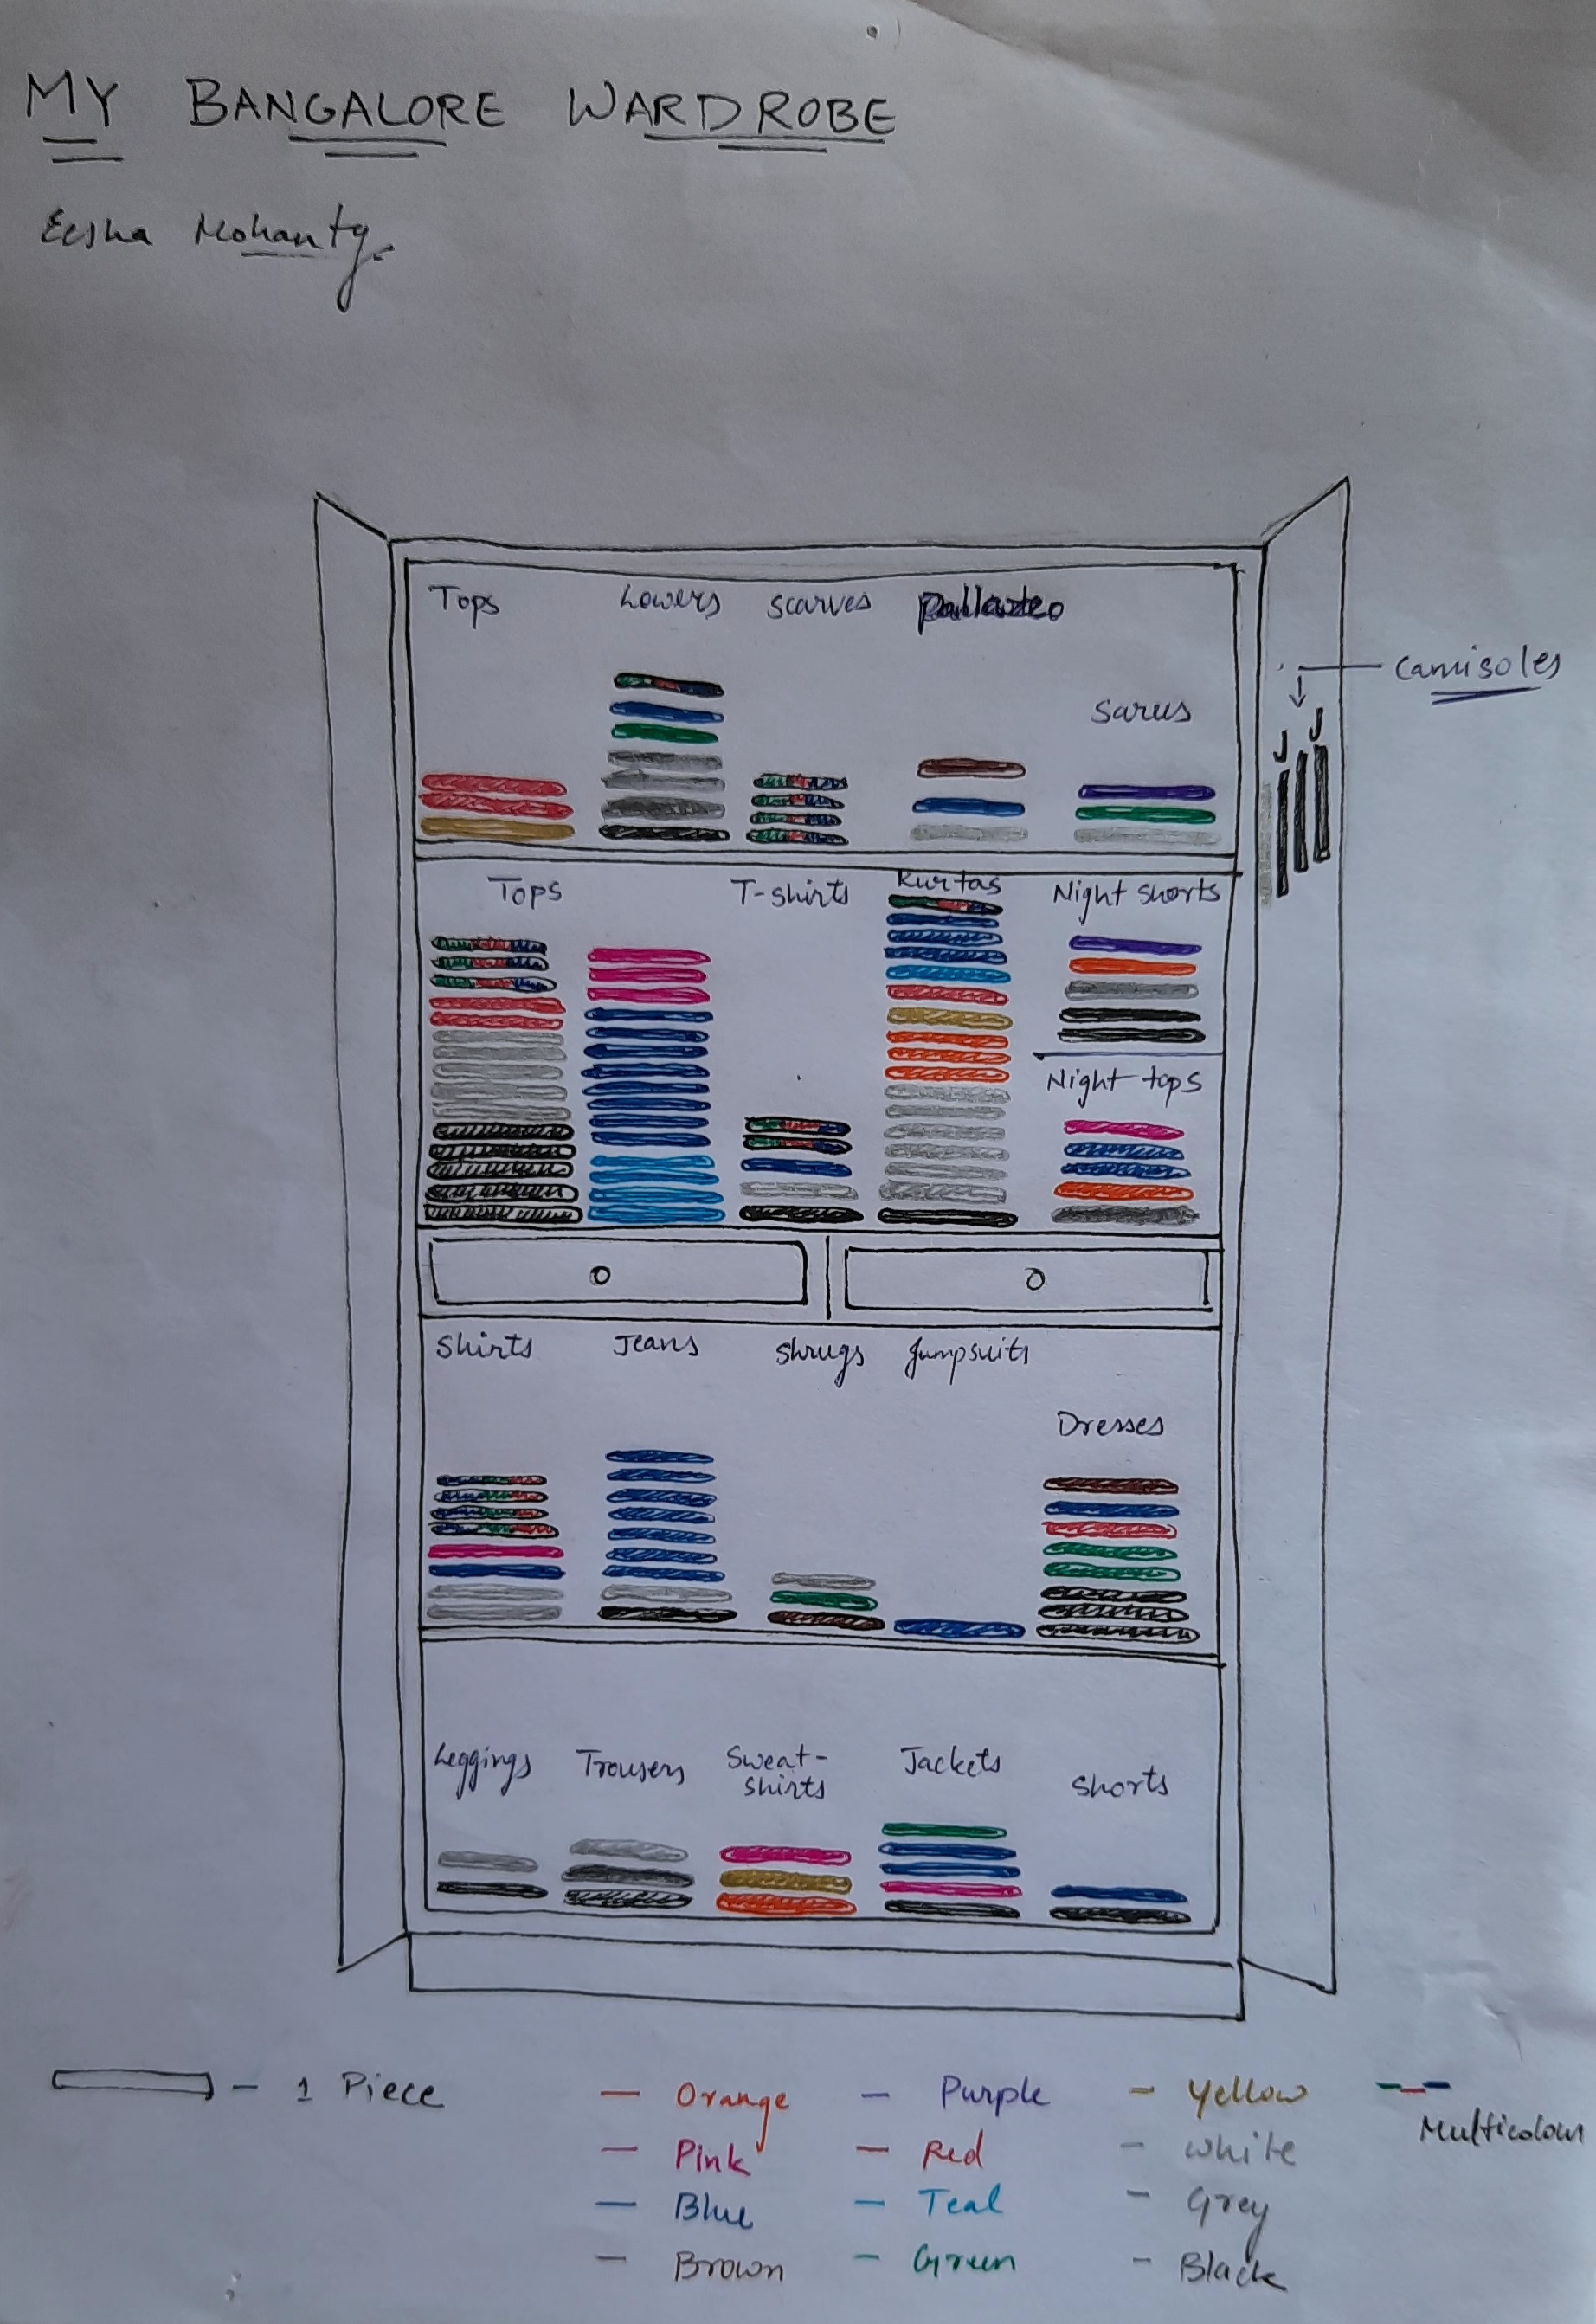 MY BANGALORE WARDROBE
Eesha Mohanty.
Tops Lowers Scarves Pallazeo
Sarees
Camisoles
Tops T-shirts Kurtas Night shorts
Night tops
Shirts Jeans Shrugs Jumpsuits
Dresses
Leggings Trousers Sweat-shirts Jackets Shorts
- 1 Piece
- Orange - Purple - Yellow
Multicolour
- Pink - Red - White
- Blue - Teal - Grey
- Brown - Green - Black